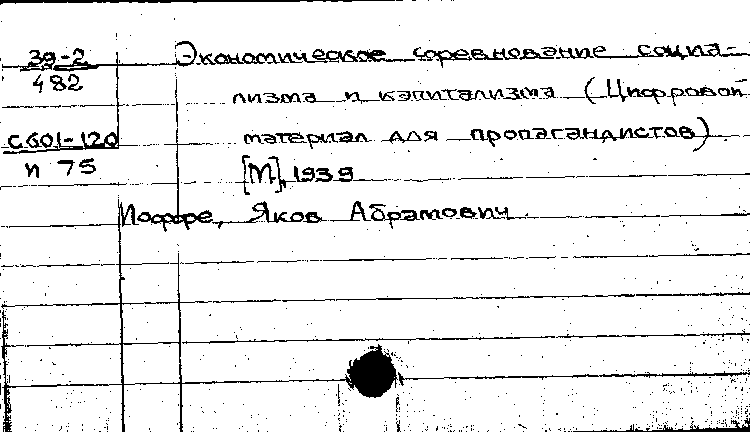 39-2
482
Экономическое соревнование социа-
лизма и капитализма (Цифровой
материал для пропагандистов)
[М], 1939
С601-120
И 75
Иоффе, Яков Абрамович.